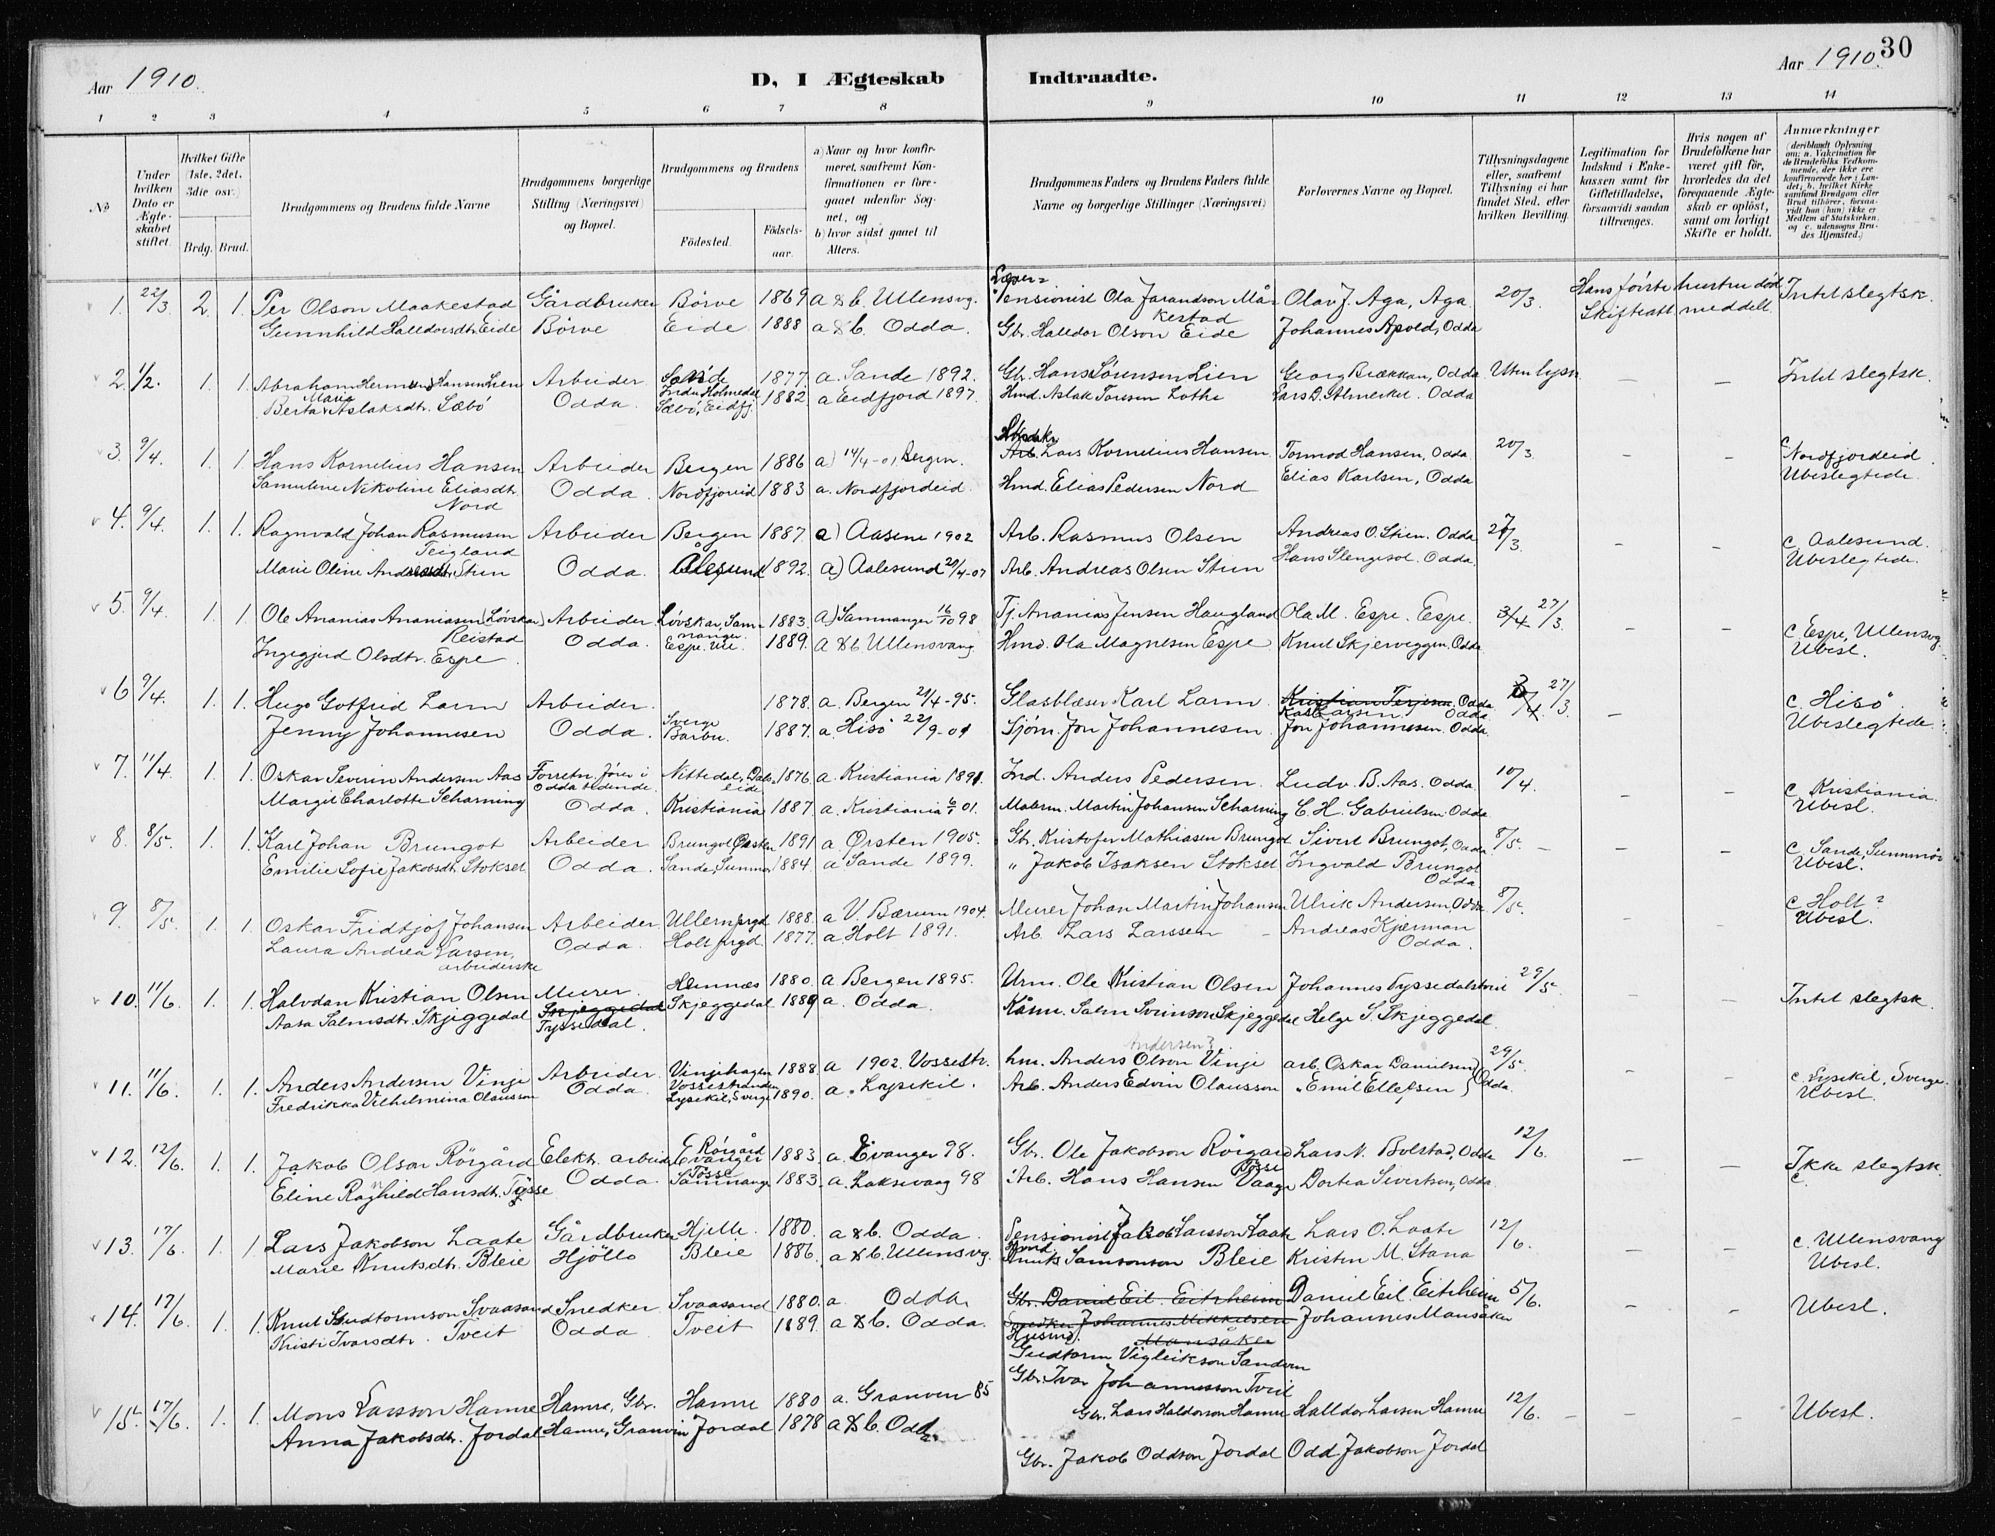 Aar 1910. D, I Ægteskab Indtraadte. Aar 1910. 30
1 2 3 4 5 6 7 8 9 10 11 12 13 14
No
Under hvilken Dato er Ægteskabet stiftet.
Hvilket Gifte (1ste, 2det, 3die osv.)
Brdg. Brud.
Brudgommens og Brudens fulde Navne
Brudgommens borgerlige Stilling (Næringsvei) og Bopæl.
Brudgommens og Brudens
Födested. Födselsaar.
a) Naar og hvor konfirmeret, saafremt Konfirmationen er foregaaet udenfor Sognet, og
b) hvor sidst gaaet til Alters.
Brudgommens Faders og Brudens Faders fulde Navne og borgerlige Stillinger (Næringsvei)
Forlovernes Navne og Bopæl.
Tillysningsdagene eller, saafremt Tillysning ei har fundet Sted, efter hvilken Bevilling.
Legitimation for Indskud i Enkekassen samt for Giftetilladelse, forsaavidt saadan tiltrænges.
Hvis nogen af Brudefolkene har været gift för, hvorledes da det foregaaende Ægteskab er oplöst, samt om lovligt Skifte er holdt.
Anmærkninger (deriblandt Oplysning om: a. Vakcination for de Brudefolks Vedkommende, der ikke ere konfirmerede her i Landet; b. hvilket Kirkesamfund Brudgom eller Brud tilhörer, forsaavidt han (hun) ikke er Medlem af Statskirken, og c. udensogns Brudes Hjemsted.)
1. 22/3 2. 1. Per Olson Maakestad Gårdbruker Börve 1869 a & b. Ullensvg. Pensionist Ola Jarandson Måkestad Olav J. Aga, Aga 20/3. Hans förste hustru död Intet slegtsk.
Gunnhild Halldorsdtr. Eide Börve Eide 1888 a & b. Odda. Gbr. Halldor Olson Eide Johannes Apold, Odda Skifteatt. meddelt.
2. 1/2. 1. 1. Abraham Hansen Lien Arbeider Sande 1877. a. Sande 1892. Gbr. Hans Sörensen Lien Georg Brækkan, Odda Uten lysn. — — Intet slegtsk.
Berta Maria Aslaksdtr. Sæbö Odda. Indre Holmedal Sæbö, Eidfj. 1882 a Eidfjord 1897. Hmd. Aslak Toresen Lothe Lars D. Odda
3. 9/4. 1. 1. Hans Kornelius Hansen Arbeider Bergen 1886 a) 14/4-01 Bergen. Arb. Lars Kornelius Hansen Tormod Hansen, Odda 20/3 c Nordfjordeid.
Samuline Nikoline Eliasdtr. Nord Odda. Nordfjoreid 1883 a. Nordfjordeid. Hmd. Elias Pedersen Nord Elias Karlsen, Odda Ubeslegtede.
4. 9/4. 1. 1. Ragnvald Johan Rasmusen Teigland Arbeider Bergen 1887. a) Aasene 1902 Arb. Rasmus Olsen Andreas O. Stien. Odda 27/3. — — c Aalesund.
Marie Oline Stien Odda. Ålesund 1892. a) Aalesund 21/4-07 Arb. Andreas Olsen Stien Hans Slengesol. Odda. Ubeslegtede.
5. 9/4. 1. 1. Ole Ananias Ananiasen (Lövskar) Reistad Arbeider Lövskar, Samnanger 1883. a) Samnanger 16/10 98 Tj. Ananias Jensen Haugland Ola M. Espe. Espe. 3/4 27/3. — — c Espe, Ullensvg.
Ingegjerd Olsdtr. Espe. Odda. Espe. Ull. 1889. a & b Ullensvang Hmd. Ola Magnesen Espe Knut Skjerveggen. Odda Ubesl.
6 9/4. 1. 1. Hugo Gotfred Larm Arbeider. Sverge 1878. a. Bergen 21/4-95. Glasblæser Karl Larm Kristian Terjesen. Odda 3/4. 27/3 — c Hisö.
Karl Larsen Odda
Jenny Johannesen Odda. Barbu. 1887. a. Hisö 22/9-01 Sjöm. Jon Johannesen Jon Johannesen. Odda Ubeslegtede
7. 11/4. 1. 1. Oskar Severin Andersen Aas Forretn. förer i Odda tidende Nittedal, 1876 a. Kristiania 1891. Ind. Anders Pedersen Ludv. B. Aas. Odda 10/4. — — c Kristiania.
Margit Charlotte Scharning Odda. Kristiania 1887 a. Kristiania 01. Malerm. Martin Johansen Scharning C. H. Gabrielsen. Odda Ubesl.
8. 8/5. 1. 1. Karl Johan Brungot Arbeider Brungot Örsten 1891 a. Örsten 1905. Gb. Kristofer Mathiassen Brungot Sivert Brungot, Odda 8/5. — — c Sande, Sunnmör
Emilie Sofie Jakobsdtr. Stokset Odda. Sande, Sunnmör 1884. a. Sande 1899. " Jakob Isaksen Stokset Ingvald Brungot Odda Ubesl.
9. 8/5. 1. 1. Oskar Fridtjof Johansen Arbeider Ullern prgd 1888. a V. Bærum 1904. Murer Johan Martin Johansen Ulrik Andersen, Odda 8/5. c Holt?
Laura Andrea Larsen, arbeiderske Odda. Holt prgd. 1877. a. Holt 1891. Arb. Lars Larssen Andreas Kjerman Odda. Ubesl.
10. 11/6. 1. 1. Halvdan Kristian Olsen Murer. Hemnæs 1880. a. Bergen 1895. Urm. Ole Kristian Olsen Johannes Tyssedalstveit 29/5. — — Intet slegtsk.
Aasa Salmsdtr. Skjeggedal Skjeggedal Tyssedal. Skjeggedal 1889 a. Odda. Kårm. Salm Sveinson Skjeggedal Helge S. Skjeggedal.
Andersen?
11. 11/6. 1. 1. Anders Andersen Vinje Arbeider. Vinjehagen Vossestranden 1888. a 1902. Vossestr. hm. Anders Olson Vinje arb. Oskar Danielsen 29/5. — — c Lysekil, Sverge.
Fredrikka Vilhelmina Olausson Odda. Lysekil, Sverge 1890. a. Lysekil. Arb. Anders Edvin Olausson " Emil Ellefsen Odda. Ubesl.
12. 12/6. 1. 1. Jakob Olson Rörgård Elektr. arbeider Rörgård Evanger 1883. a. Evanger 98. Gbr. Ole Jakobson Rörgård Lars N. Bolstad, Odda 12/6. — — Ikke slegtsk.
Eline Ragnhild Hansdtr. Tysse Odda. Tösse Samnanger 1883. a. Laksevaag 98 Arb. Hans Hansen Vaage Tösse Dortea Sivertsen, Odda c.
13. 17/6. 1. 1. Lars Jakobson Laate Gårdbruker Hjelle. 1880. a & b. Odda. Pensionist Jakob Larsson Laate Lars O. Laate 12/6. — — c. Ullensvang
Marie Knutsdtr. Bleie Hjöllo Bleie 1886. a & b. Ullensvg. Hmd Knut Samsonson Bleie Kristen M. Stana Ubesl.
14. 17/6. 1. 1. Knut Gudtormson Svaasand Snedker. Svaasand 1880. a. Odda. Gbr. Daniel Eil. Eitrheim Daniel Eil. Eitrheim 5/6. — — Ubesl.
Kristi Ivarsdtr. Tveit Odda. Tveit 1889. a & b. Odda. Snedker Johannes Mikkelsen Mansåker Johannes Mansåker
Husmd. Gudtorm Vigleikson Sandven
Gbr. Ivar Johannesson Tveit
15. 17/6. 1. 1. Mons Larsson Hamre Hamre, Gbr. Hamre 1880 a. Granven 85 Gbr. Lars Haldorson Hamre Halldor Larsen Hamre 12/6. — — Ubesl.
Anna Jakobsdtr. Jordal Hamre, Granvin Jordal 1878 a & b. Odda. Gbr. Jakob Oddson Jordal Odd Jakobson Jordal